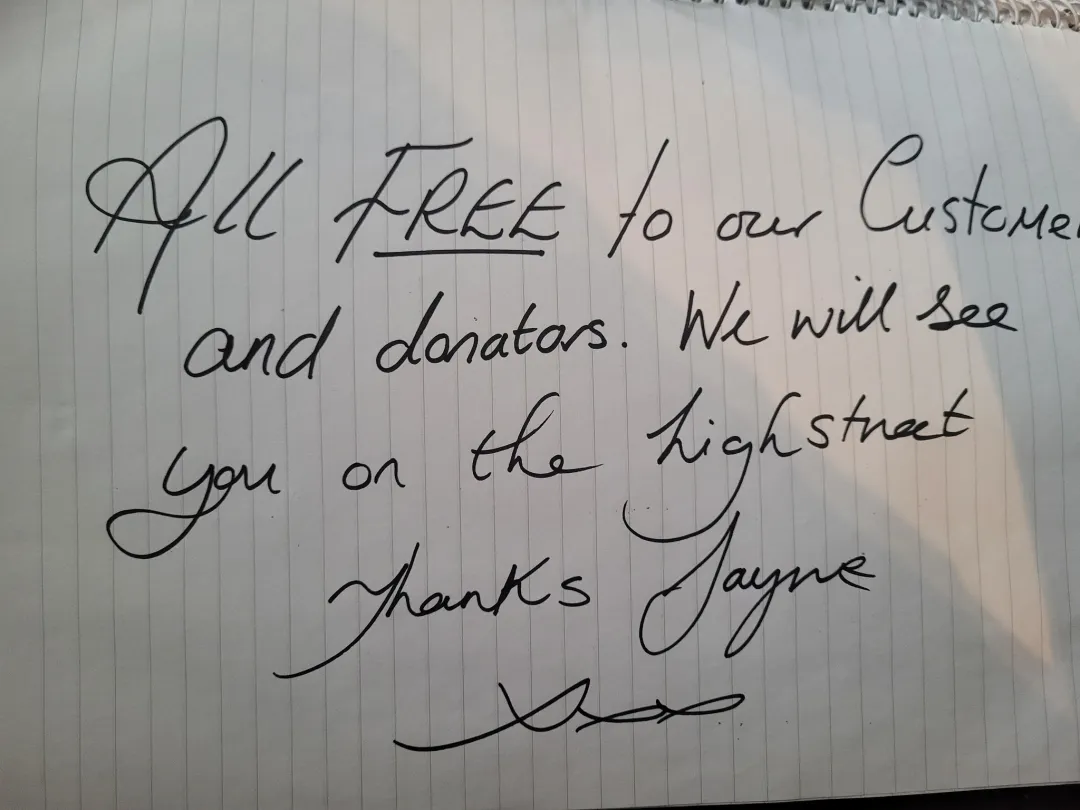 All FREE to our Custome
and donators. We will see
you on the highstreet
Thanks Jayne
xxx